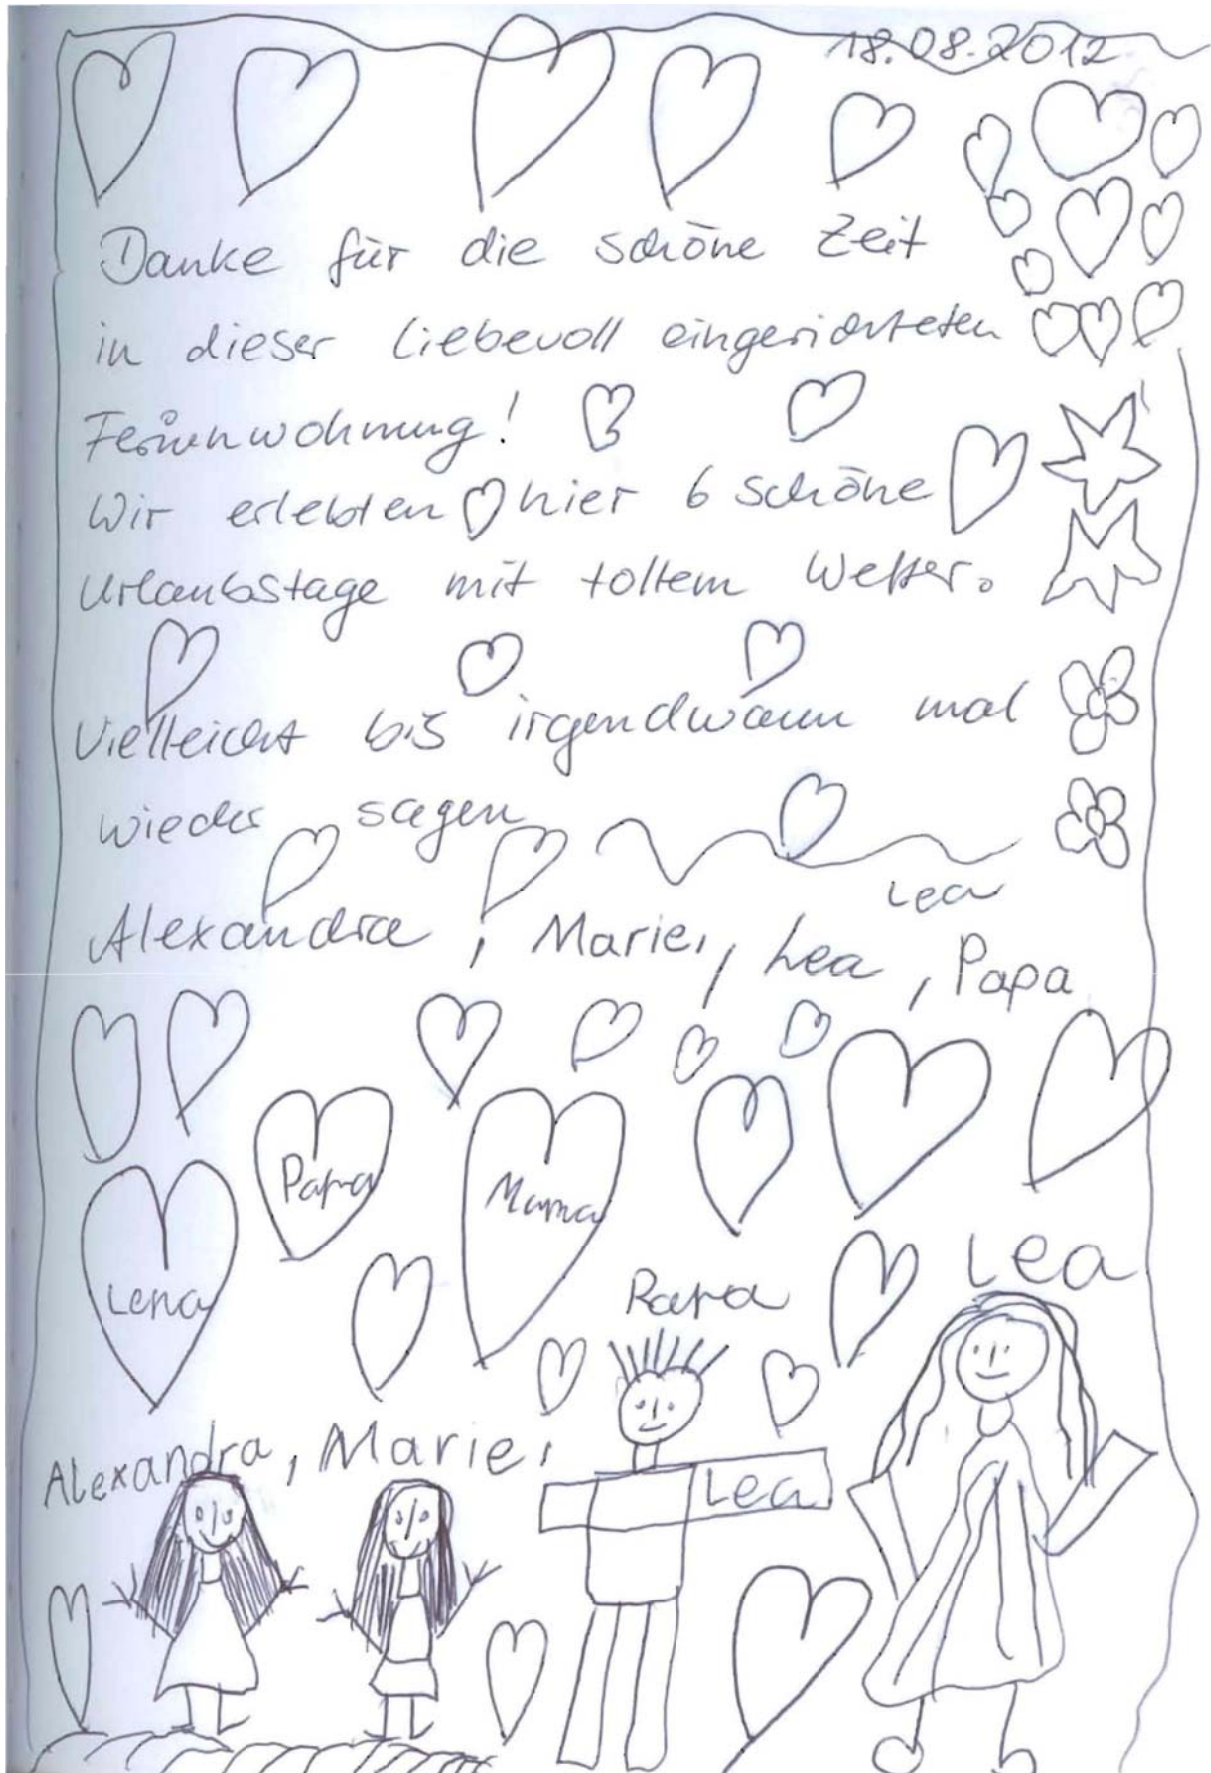 18.08.2012
Danke für die schöne Zeit
in dieser liebevoll eingerichteten
Ferienwohnung!
Wir erlebten hier 6 schöne
Urlaubstage mit tollem Wetter.
Vielleicht bis irgendwann mal
wieder sagen
Lea
Alexandra, Marie, Lea, Papa
Papa
Mama
Lena
Lea
Papa
Alexandra, Marie,
Lea